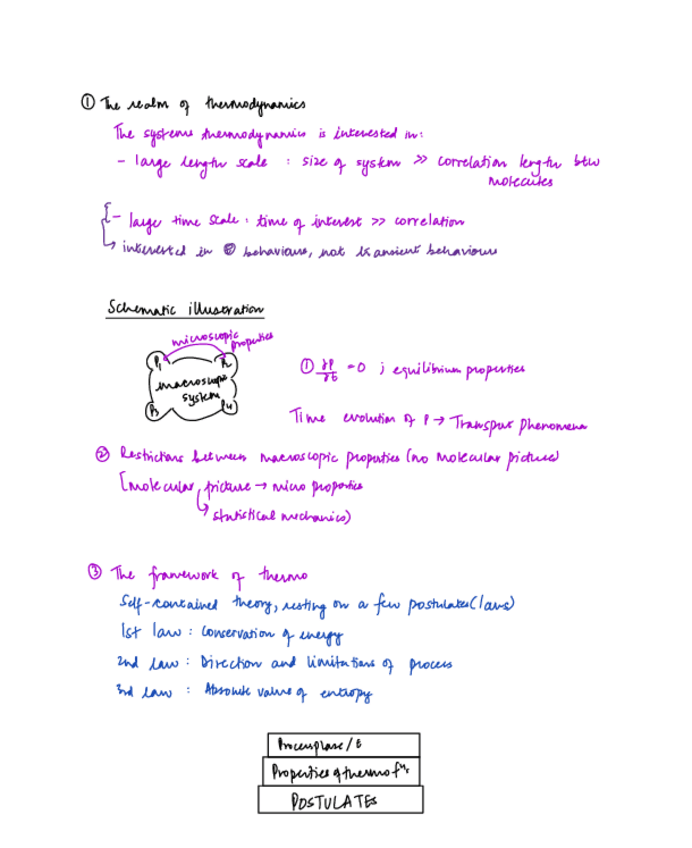 ① The realm of thermodynamics
The systems thermodynamics is interested in:
- large length scale : size of system >> correlation length btw
molecules
- large time scale : time of interest >> correlation
↳ interested in behaviours, not transient behaviours
Schematic illustration
microscopic
properties
P1
macroscopic
system
P3 P4
① ∂P/∂t = 0 ; equilibrium properties
Time evolution of P → Transport phenomena
② Restrictions between macroscopic properties (no molecular picture)
[molecular picture → micro properties
↳ statistical mechanics)
③ The framework of thermo
Self-contained theory, resting on a few postulates (laws)
1st law : Conservation of energy
2nd law : Direction and limitations of process
3rd law : Absolute value of entropy
Properties of thermo fⁿs
POSTULATES